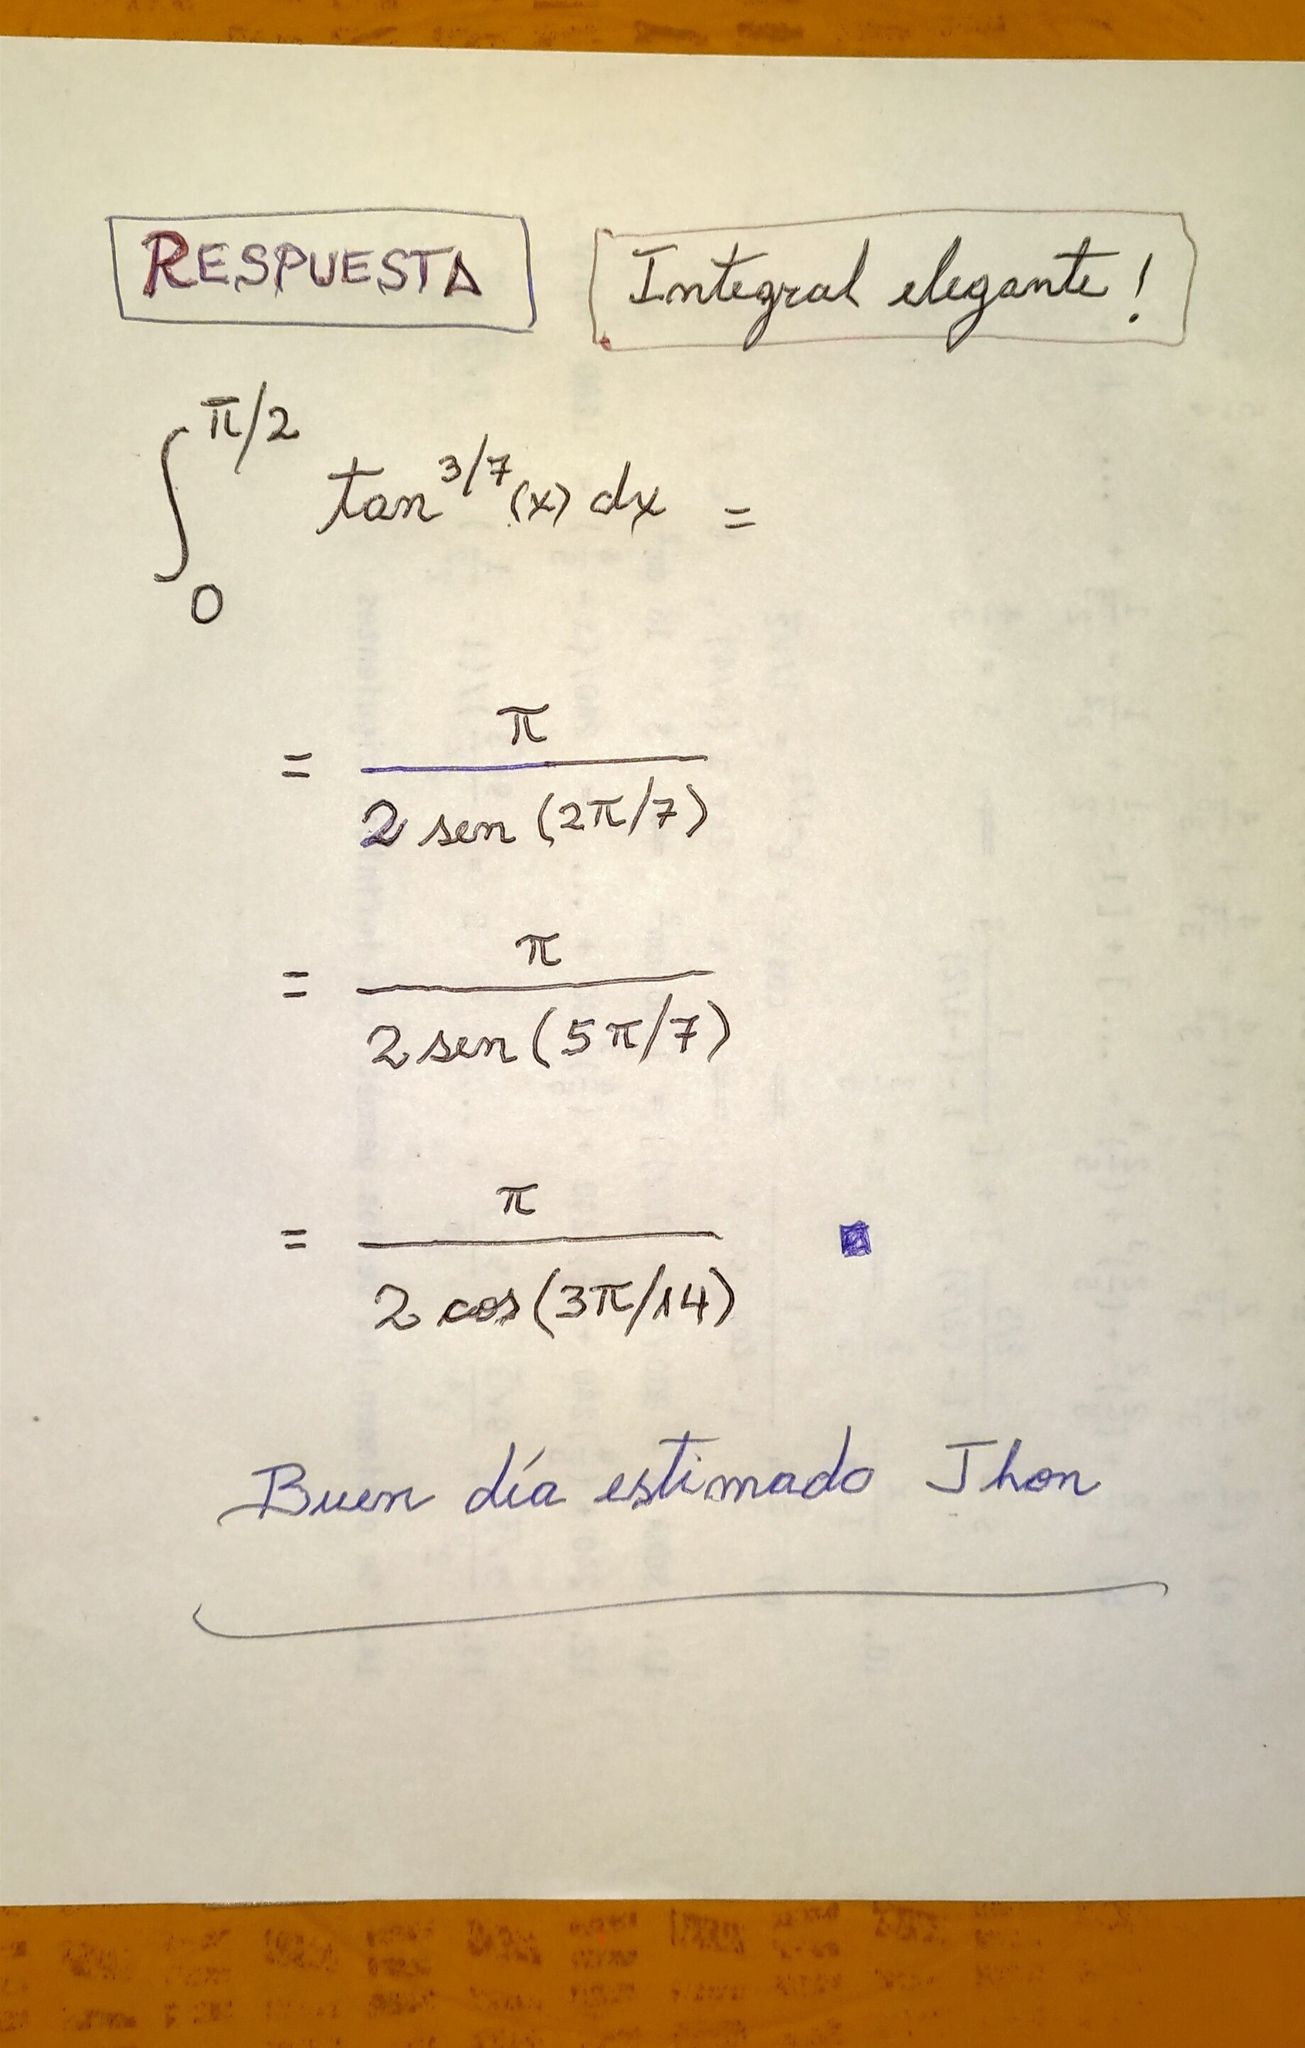 RESPUESTA
Integral elegante!
∫₀^π/2 tan^3/7 (x) dx =
= π / 2 sen (2π/7)
= π / 2 sen (5π/7)
= π / 2 cos (3π/14)
Buen día estimado Jhon